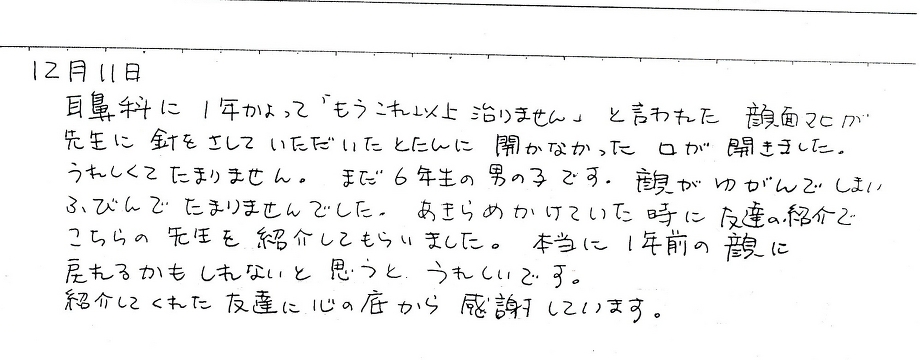 12月11日
耳鼻科に 1年かよって「もうこれ以上 治りません」 と言われた 顔面マヒが
先生に 針を さして いただいた とたんに 開かなかった 口が 開きました。
うれしくて たまりません。 まだ 6年生の 男の子 です。 顔が ゆがんで しまい
ふびんで たまりませんでした。 あきらめかけていた 時に 友達の紹介で
こちらの 先生を 紹介してもらいました。 本当に 1年前の 顔に
戻れるかも しれないと 思うと うれしいです。
紹介してくれた 友達に 心の底から 感謝しています。